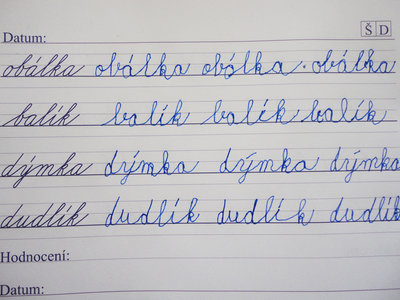 Š D
Datum:
obálka obálka obálka · obálka
balík balík balík balík
dýmka dýmka dýmka dýmka
dudlík dudlík dudlík dudlík
Hodnocení:
Datum: